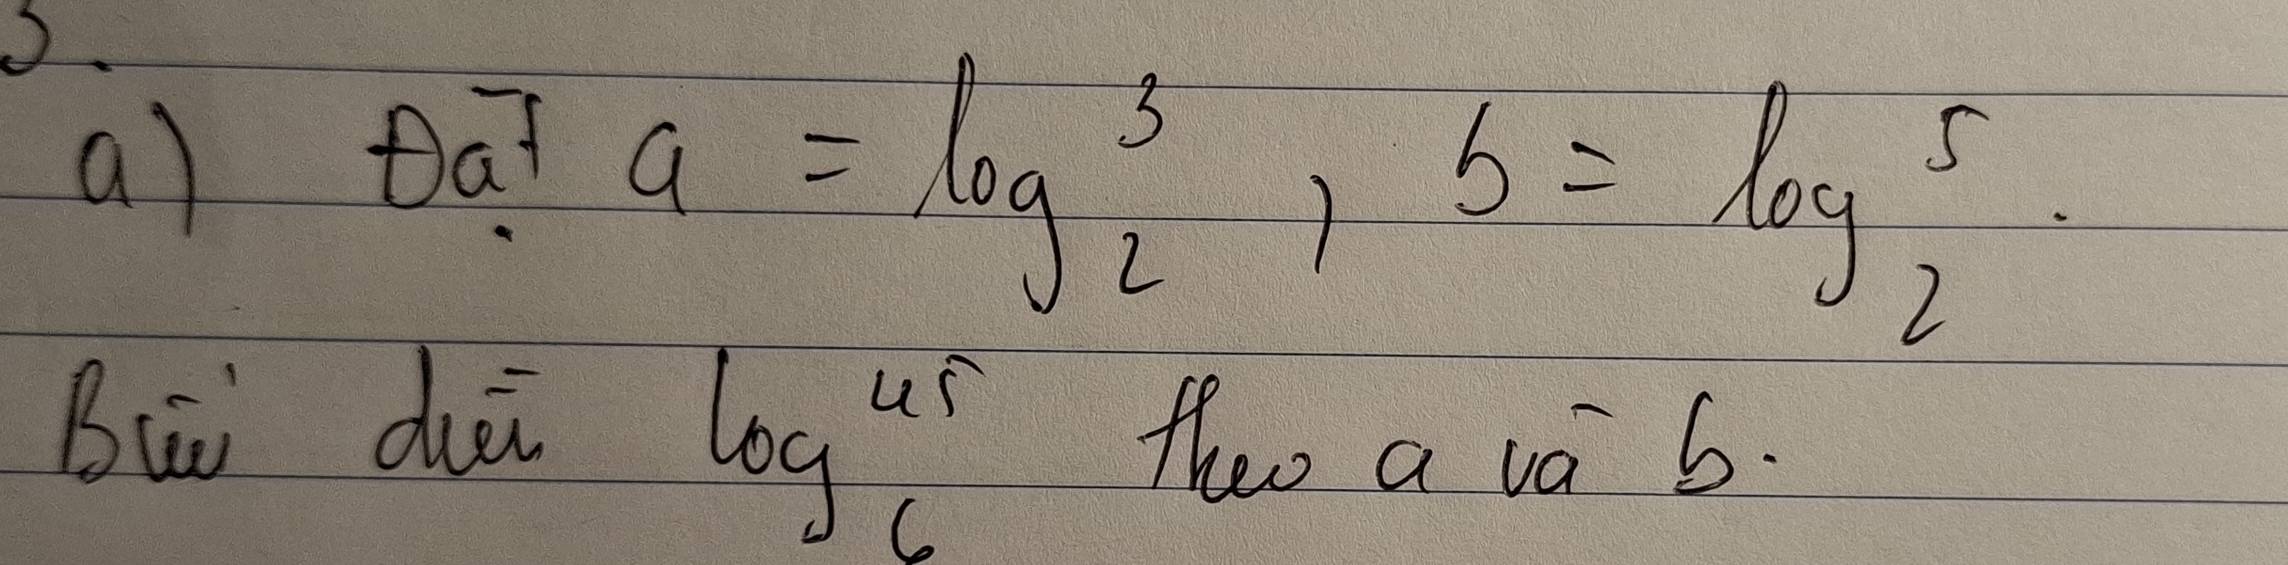 3.
a) Đặt a = log₂³, b = log₂⁵.
Biểu diễn log₆⁴⁵ theo a và b.